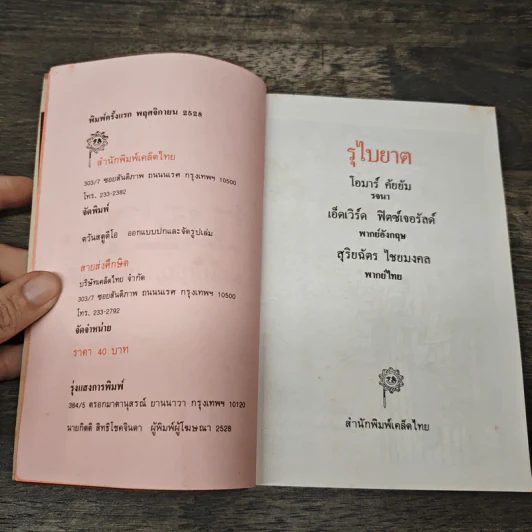 พิมพ์ครั้งแรก พฤศจิกายน 2528
สำนักพิมพ์เคล็ดไทย
303/7 ซอยสันติภาพ ถนนนเรศ กรุงเทพฯ 10500
โทร. 233-2382
จัดพิมพ์
ตวันสตูดิโอ ออกแบบปกและจัดรูปเล่ม
สายส่งศึกษิต
บริษัทเคล็ดไทย จำกัด
303/7 ซอยสันติภาพ ถนนนเรศ กรุงเทพฯ 10500
โทร. 233-2792
จัดจำหน่าย
ราคา 40 บาท
รุ่งแสงการพิมพ์
384/5 ตรอกมาตานุสรณ์ ยานนาวา กรุงเทพฯ 10120
นายกิตติ สิทธิโชคจินดา ผู้พิมพ์ผู้โฆษณา 2528
รุไบยาต
โอมาร์ คัยยัม
รจนา
เอ็ดเวิร์ด ฟิตซ์เจอรัลด์
พากย์อังกฤษ
สุริยฉัตร ไชยมงคล
พากย์ไทย
สำนักพิมพ์เคล็ดไทย